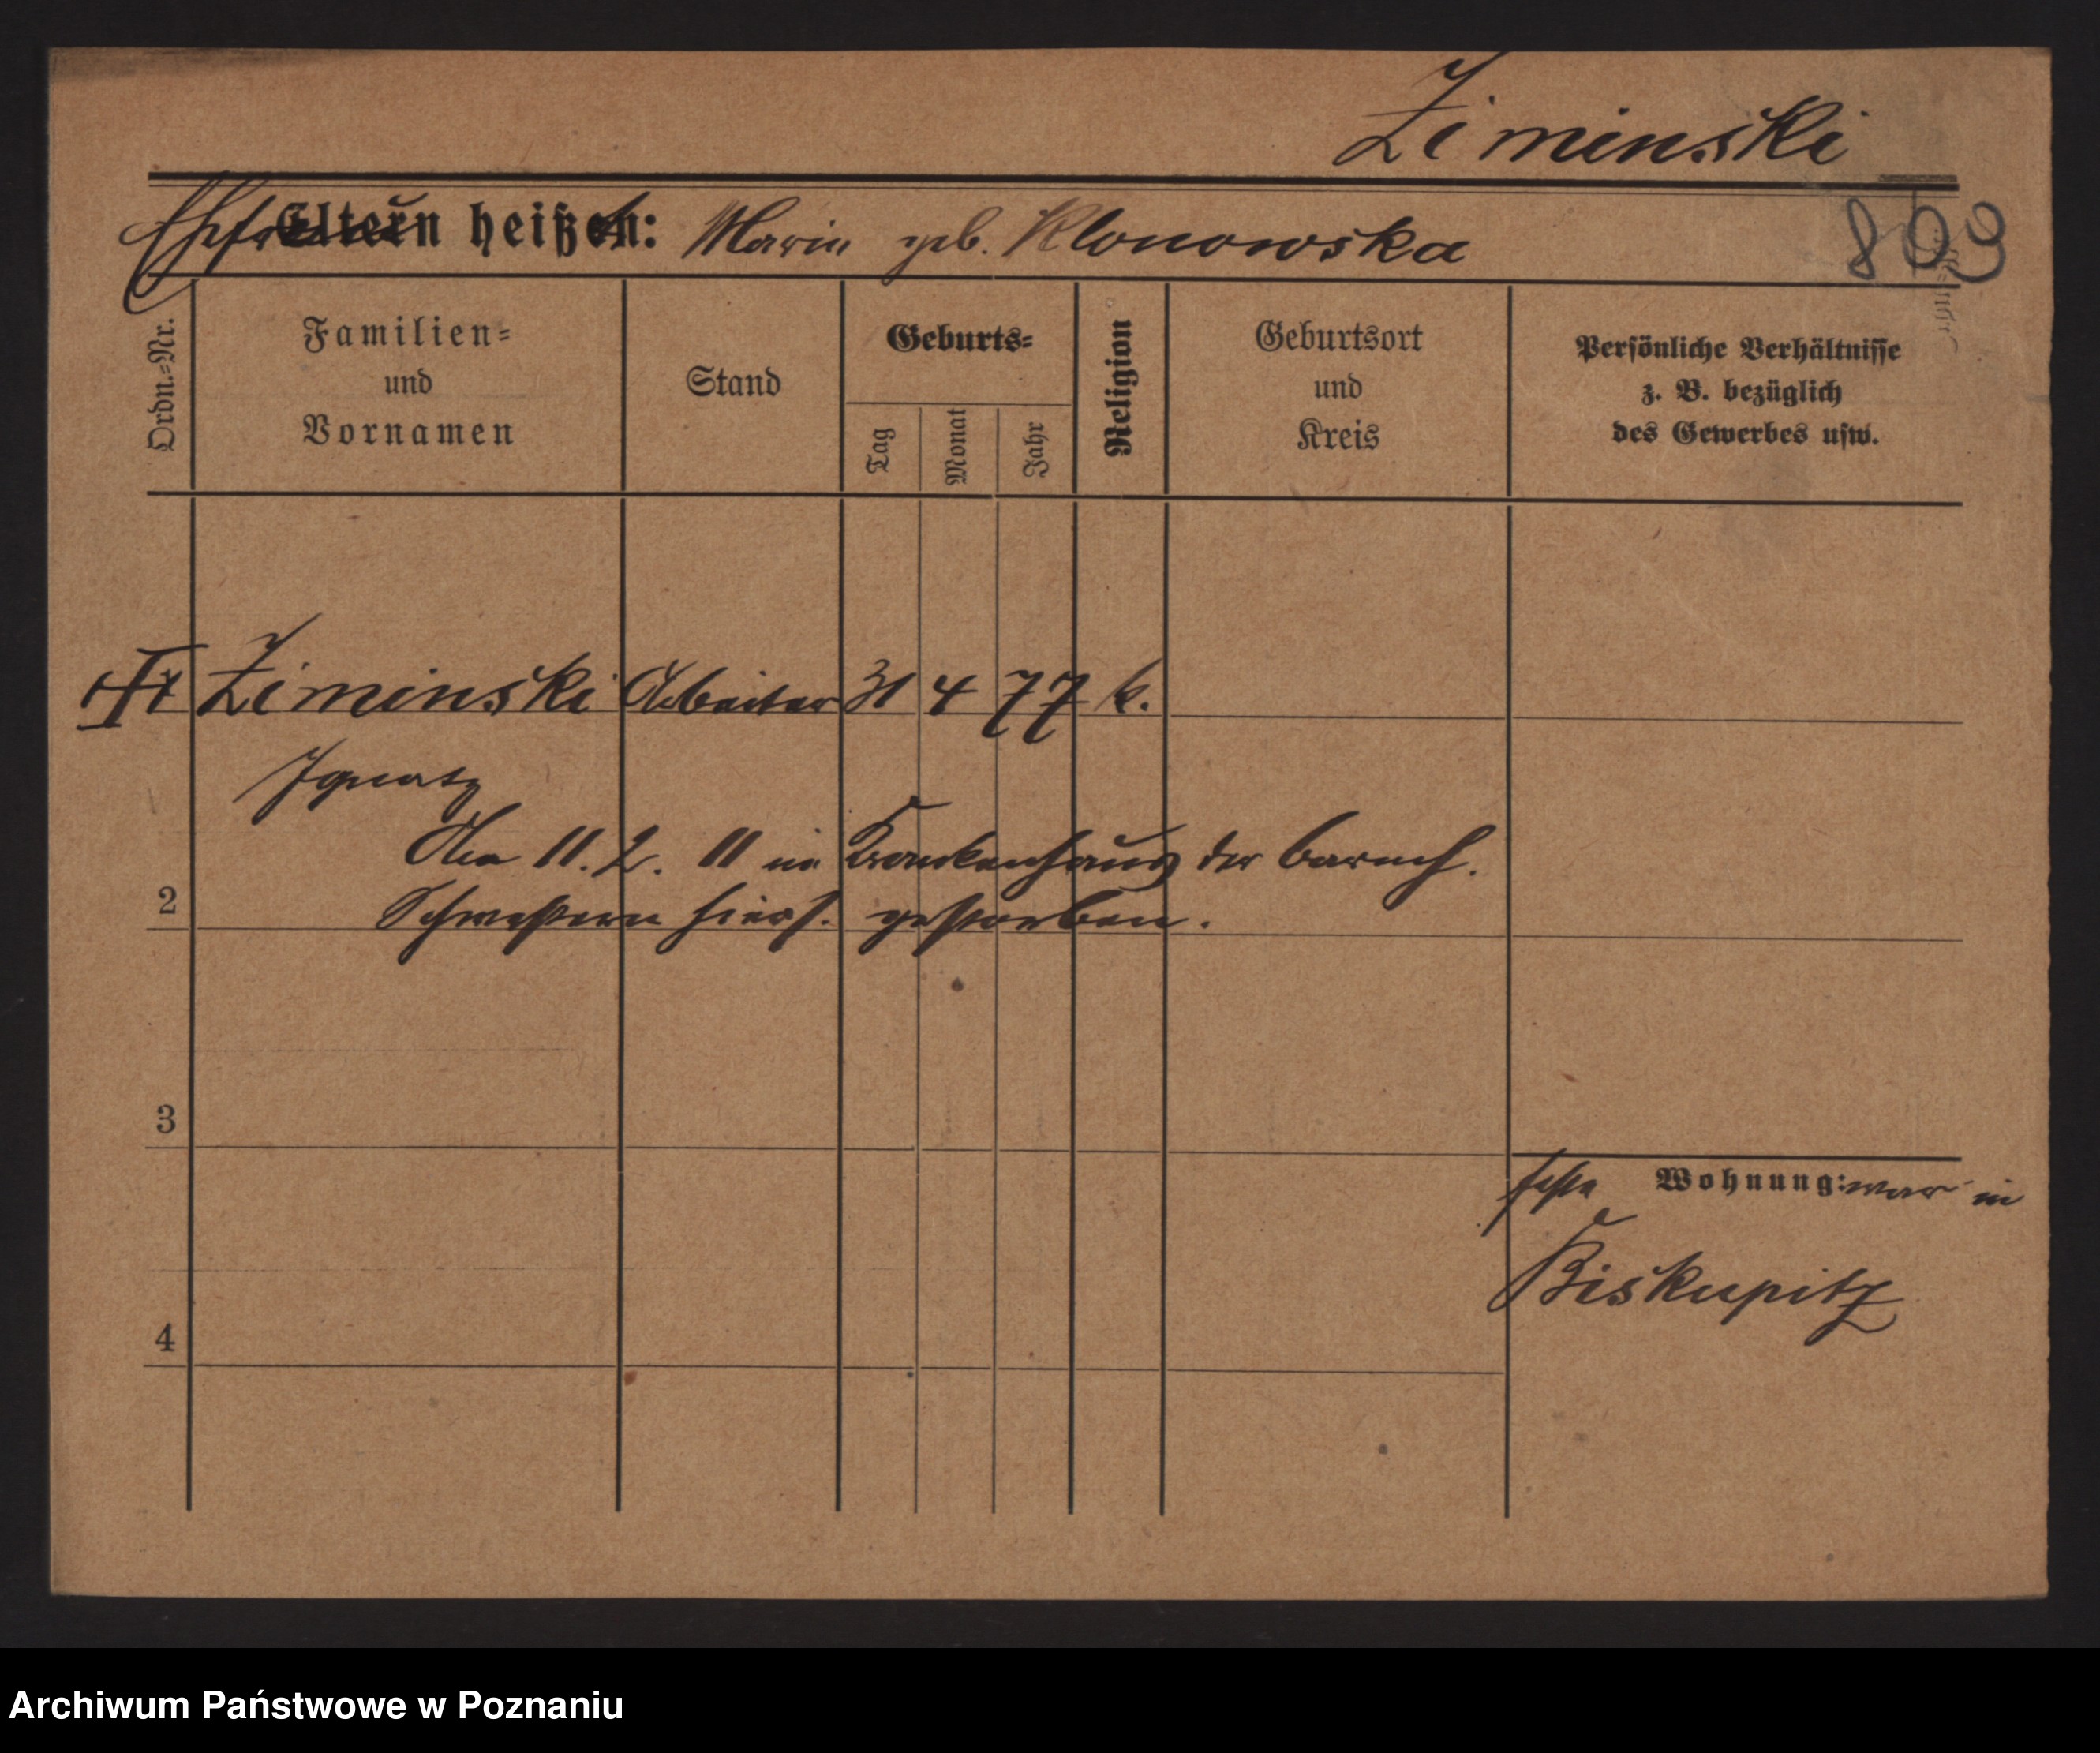 Ziminski
Ehefrau heißt: Marie geb. Klonowska
809
Ordn.-Nr.
Familien-
und
Vornamen
Stand
Geburts-
Tag
Monat
Jahr
Religion
Geburtsort
und
Kreis
Persönliche Verhältnisse
z. B. bezüglich
des Gewerbes usw.
Ziminski Arbeiter 31 4 77 k.
Ignatz
Am 11. 2. 11 im Krankenhaus der barmh.
2 Schwestern hiers. gestorben.
3
feste Wohnung: war in
Biskupitz
4
Archiwum Państwowe w Poznaniu